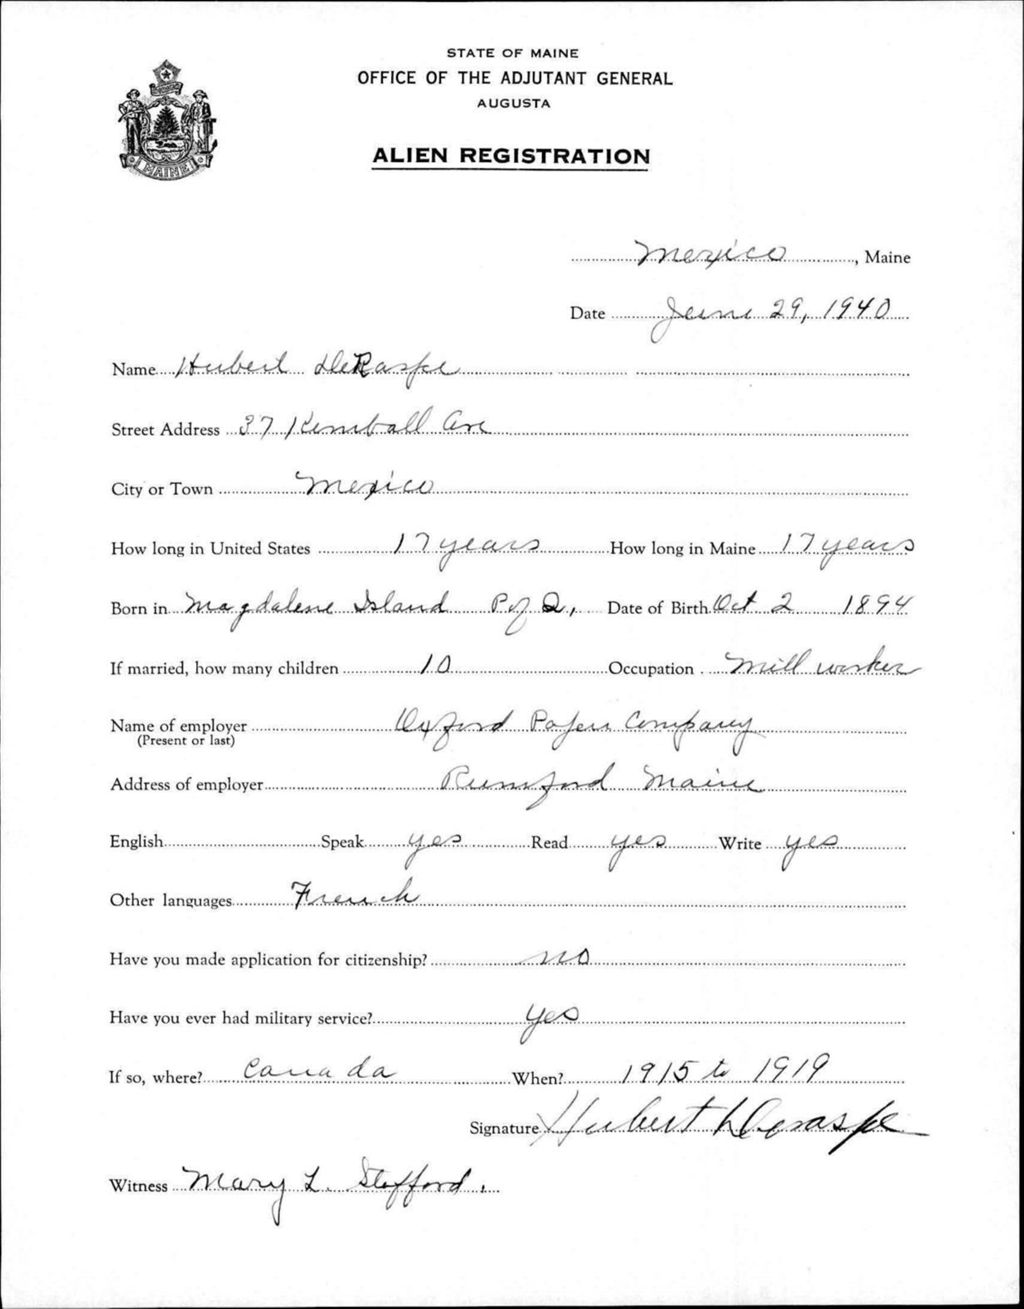 STATE OF MAINE
OFFICE OF THE ADJUTANT GENERAL
AUGUSTA
ALIEN REGISTRATION
MAINE
Mexico, Maine
Date June 29, 1940
Name Hubert DeRaspe
Street Address 37 Kimball Ave
City or Town Mexico
How long in United States 17 years How long in Maine 17 years
Born in Magdalene Island P of Q, Date of Birth Oct 2 1894
If married, how many children 10 Occupation Mill worker
Name of employer Oxford Paper Company
(Present or last)
Address of employer Rumford Maine
English Speak yes Read yes Write yes
Other languages French
Have you made application for citizenship? no
Have you ever had military service? yes
If so, where? Canada When? 1915 to 1919
Signature Hubert Deraspe
Witness Mary L. Stafford.